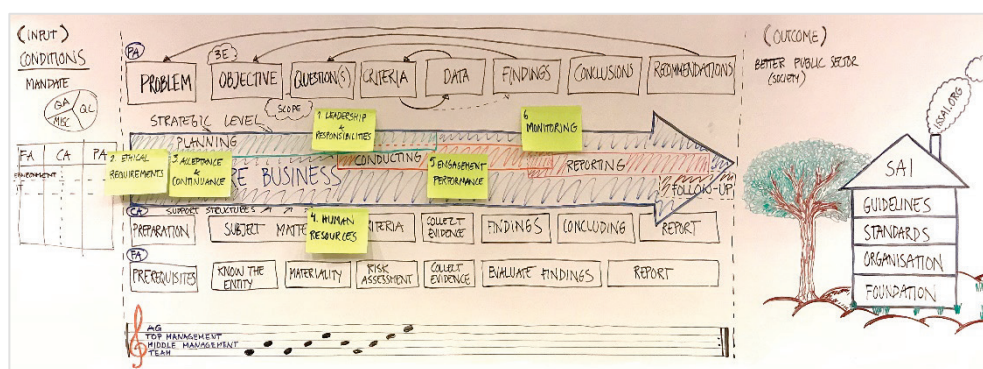 (INPUT)
CONDITIONS
MANDATE
QA
QC
MISC
FA CA PA
ENVIRONMENT
IT
PA
3E
PROBLEM
OBJECTIVE
QUESTION(S)
CRITERIA
DATA
FINDINGS
CONCLUSIONS
RECOMMENDATIONS
SCOPE
STRATEGIC LEVEL
PLANNING
1. LEADERSHIP
&
RESPONSIBILITIES
6
MONITORING
CONDUCTING
REPORTING
2. ETHICAL
REQUIREMENTS
3 ACEPTANCE
&
CONTINUANCE
RE BUSINESS
5 ENGAGEMENT
PERFORMANCE
FOLLOW-UP
CA
SUPPORT STRUCTURES
4. HUMAN
RESOURCES
PREPARATION
SUBJECT MATTE
CRITERIA
COLLECT
EVIDENCE
FINDINGS
CONCLUDING
REPORT
FA
PREREQUISITES
KNOW THE
ENTITY
MATERIALITY
RISK
ASSESSMENT
COLLECT
EVIDENCE
EVALUATE FINDINGS
REPORT
AG
TOP MANAGEMENT
MIDDLE MANAGEMENT
TEAM
(OUTCOME)
BETTER PUBLIC SECTOR
(SOCIETY)
ISSAI.ORG
SAI
GUIDELINES
STANDARDS
ORGANISATION
FOUNDATION